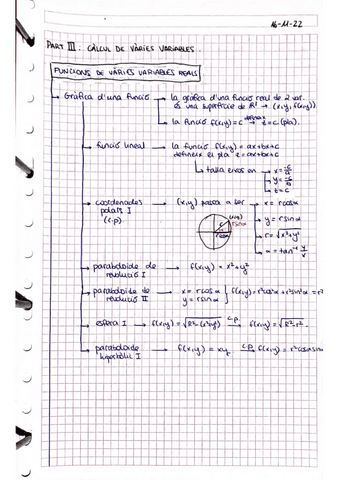 16-11-22
PART III. CÀLCUL DE VÀRIES VARIABLES.
FUNCIONS DE VÀRIES VARIABLES REALS
Gràfica d'una funció → la gràfica d'una funció real de 2 var.
és una superfície de → (x,y, f(x,y))
la funció f(x,y)=C → z=C (pla).
funció lineal → la funció f(x,y)=ax+bx+c
defineix el pla z=ax+bx+c
talla eixos en → x=
y=
z=
coordenades polars I (c.p.) → (x,y) passa a ser → x=rcosα
y=rsinα
r=√x²+y²
α=tan⁻¹ y/x
(x,y)
r
rsinα
rcosα
paraboloide de revolució I → f(x,y)=x²+y²
paraboloide de revolució II → x=rcosα
y=rsinα } f(x,y)=r²cos²α+r²sin²α=r²
esfera I → f(x,y)=√R²-(x²+y²) c.p. → f(x,y)=√R²-r²
paraboloide hiperbòlic I → f(x,y)=xy c.p. → f(x,y)=r²cosαsinα